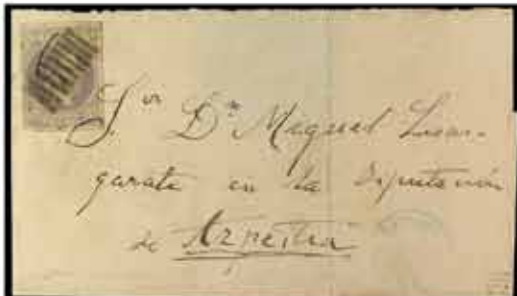 S.or D.n Miguel Lizar-
garate en la Diputación
de Azpeitia